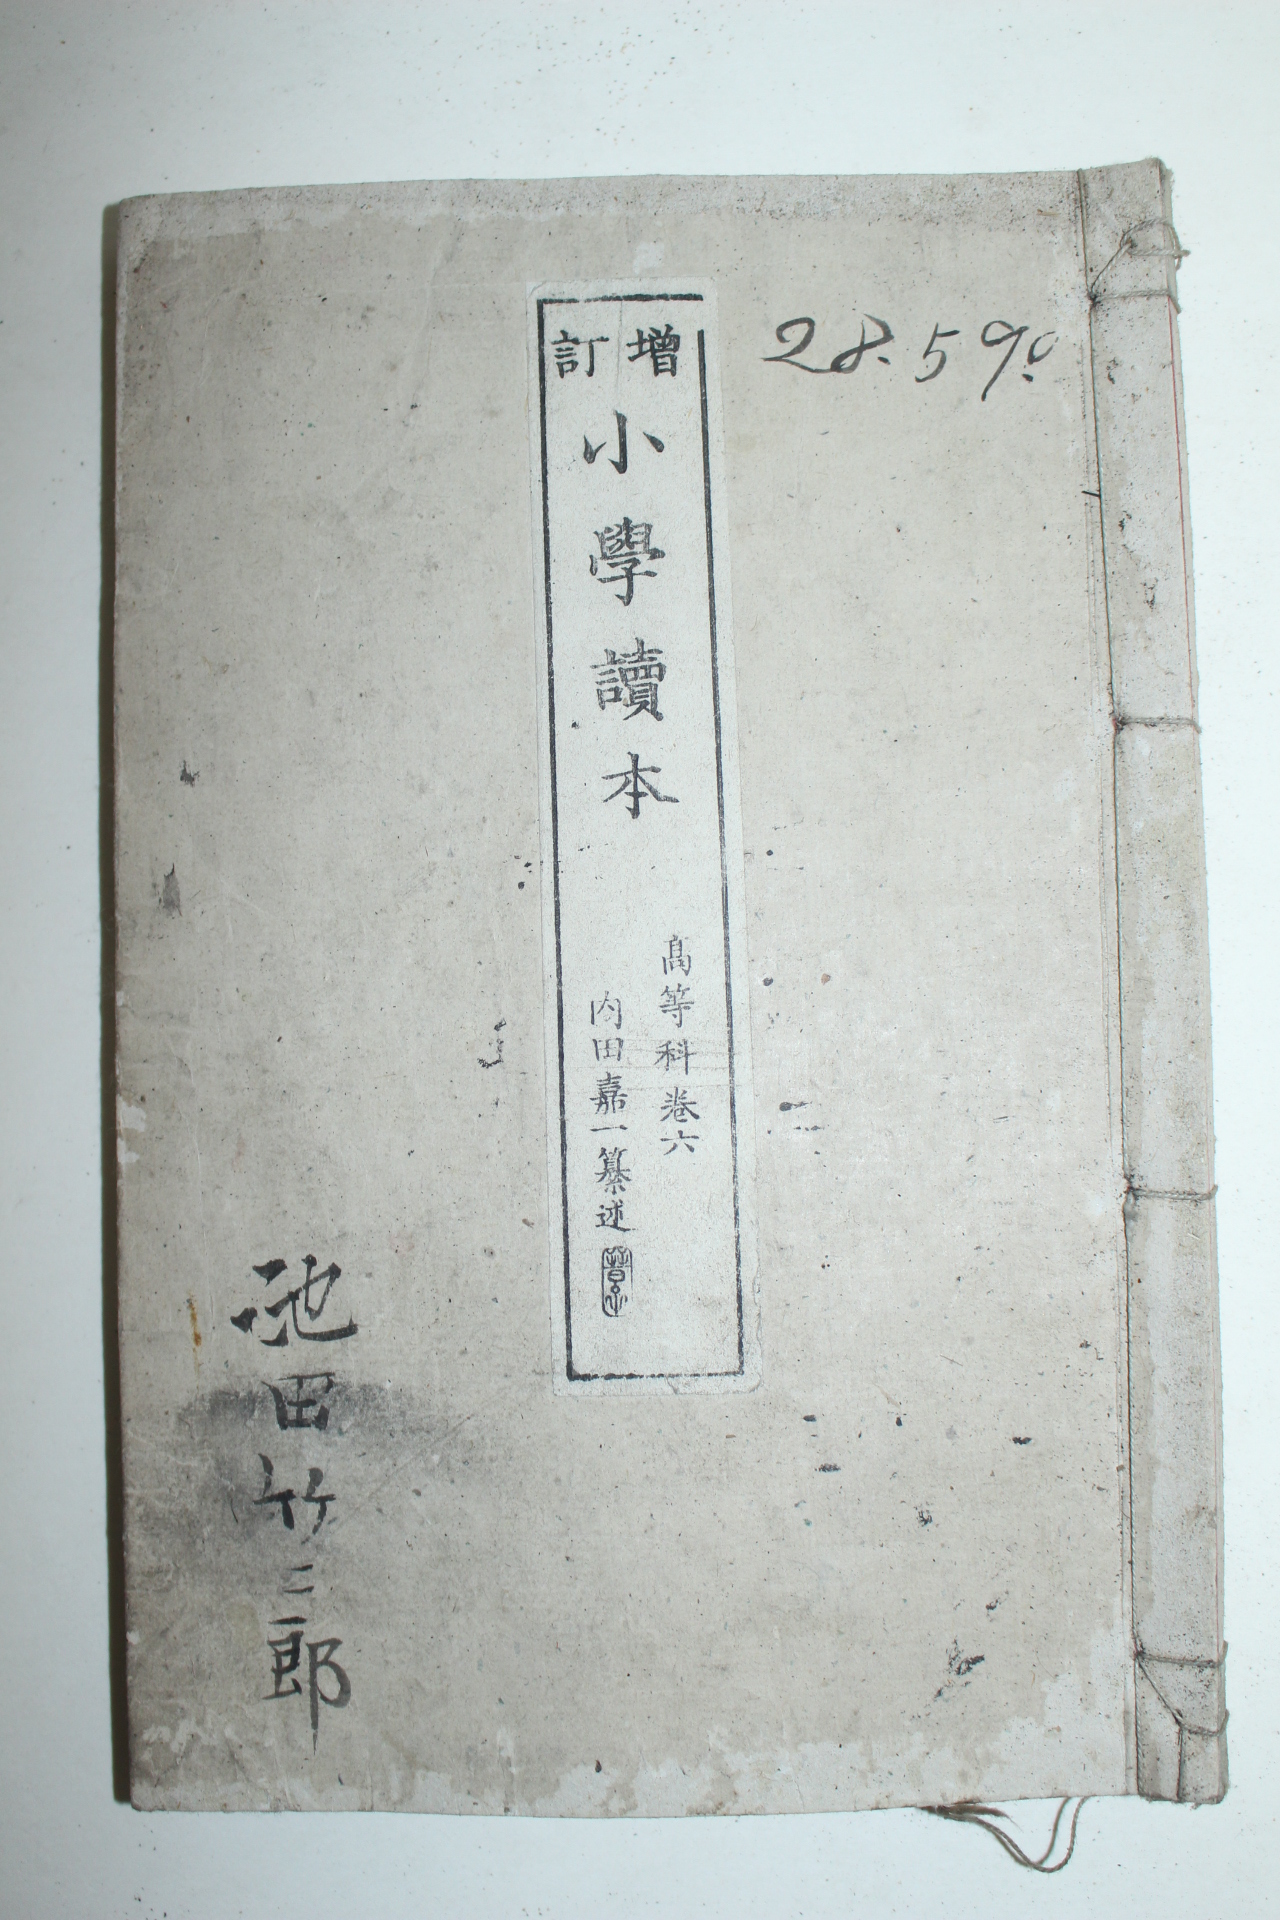 28.5.9.
增訂
小學讀本
高等科卷六
内田嘉一纂述
池田竹二郎